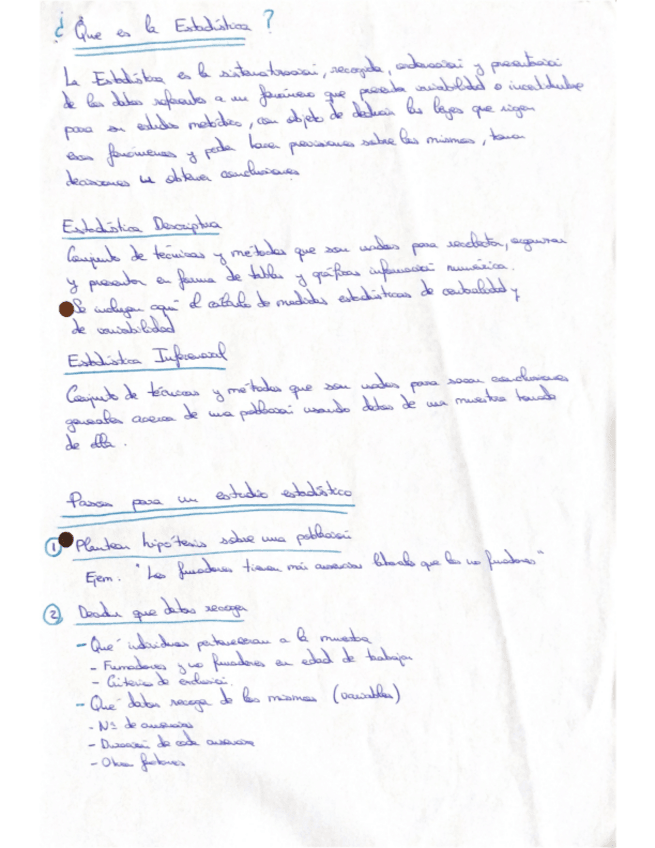 ¿ Que es la Estadística ?
La Estadística es la sistematización, recogida, ordenación y presentación
de los datos referente a un fenómeno que presenta variabilidad o incertidumbre
para su estudio metódico, con objeto de deducir las leyes que rigen
esos fenómenos y poder hacer previsiones sobre los mismos, tomar
decisiones u obtener conclusiones
Estadística Descriptiva
Conjunto de técnicas y métodos que son usados para recolectar, organizar
y presentar en forma de tablas y gráficas información numérica.
Se incluyen aquí el cálculo de medidas estadísticas de centralidad y
de variabilidad
Estadística Inferencial
Conjunto de técnicas y métodos que son usados para sacar conclusiones
generales acerca de una población usando datos de una muestra tomada
de ella.
Pasos para un estudio estadístico
1 Plantear hipótesis sobre una población
Ejem. "Los fumadores tienen más ausencias laborales que los no fumadores"
2 Decidir que datos recoger
- Qué individuos pertenecerán a la muestra
- Fumadores y no fumadores en edad de trabajar
- Criterios de exclusión.
- Qué datos recoger de los mismos (variables)
- Nº de ausencias
- Duración de cada ausencia
- Otros factores